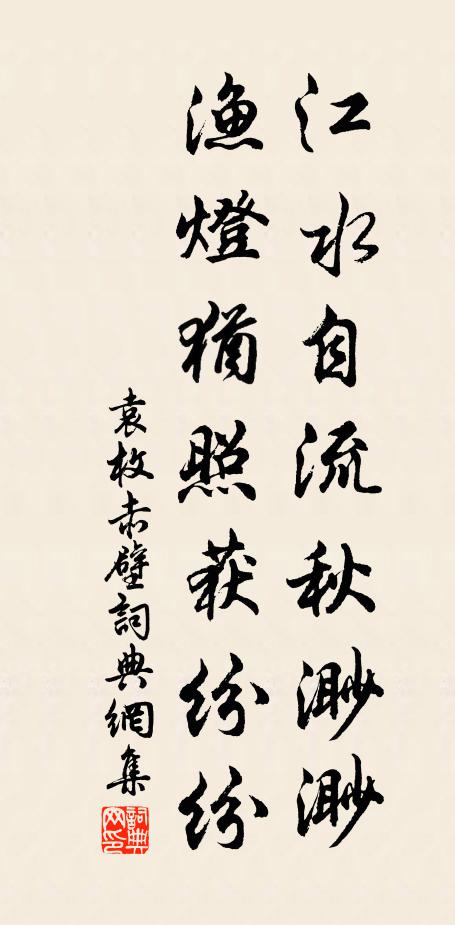 江水自流秋渺渺
漁燈猶照荻紛紛
袁枚赤壁詞典網集
詞典網印